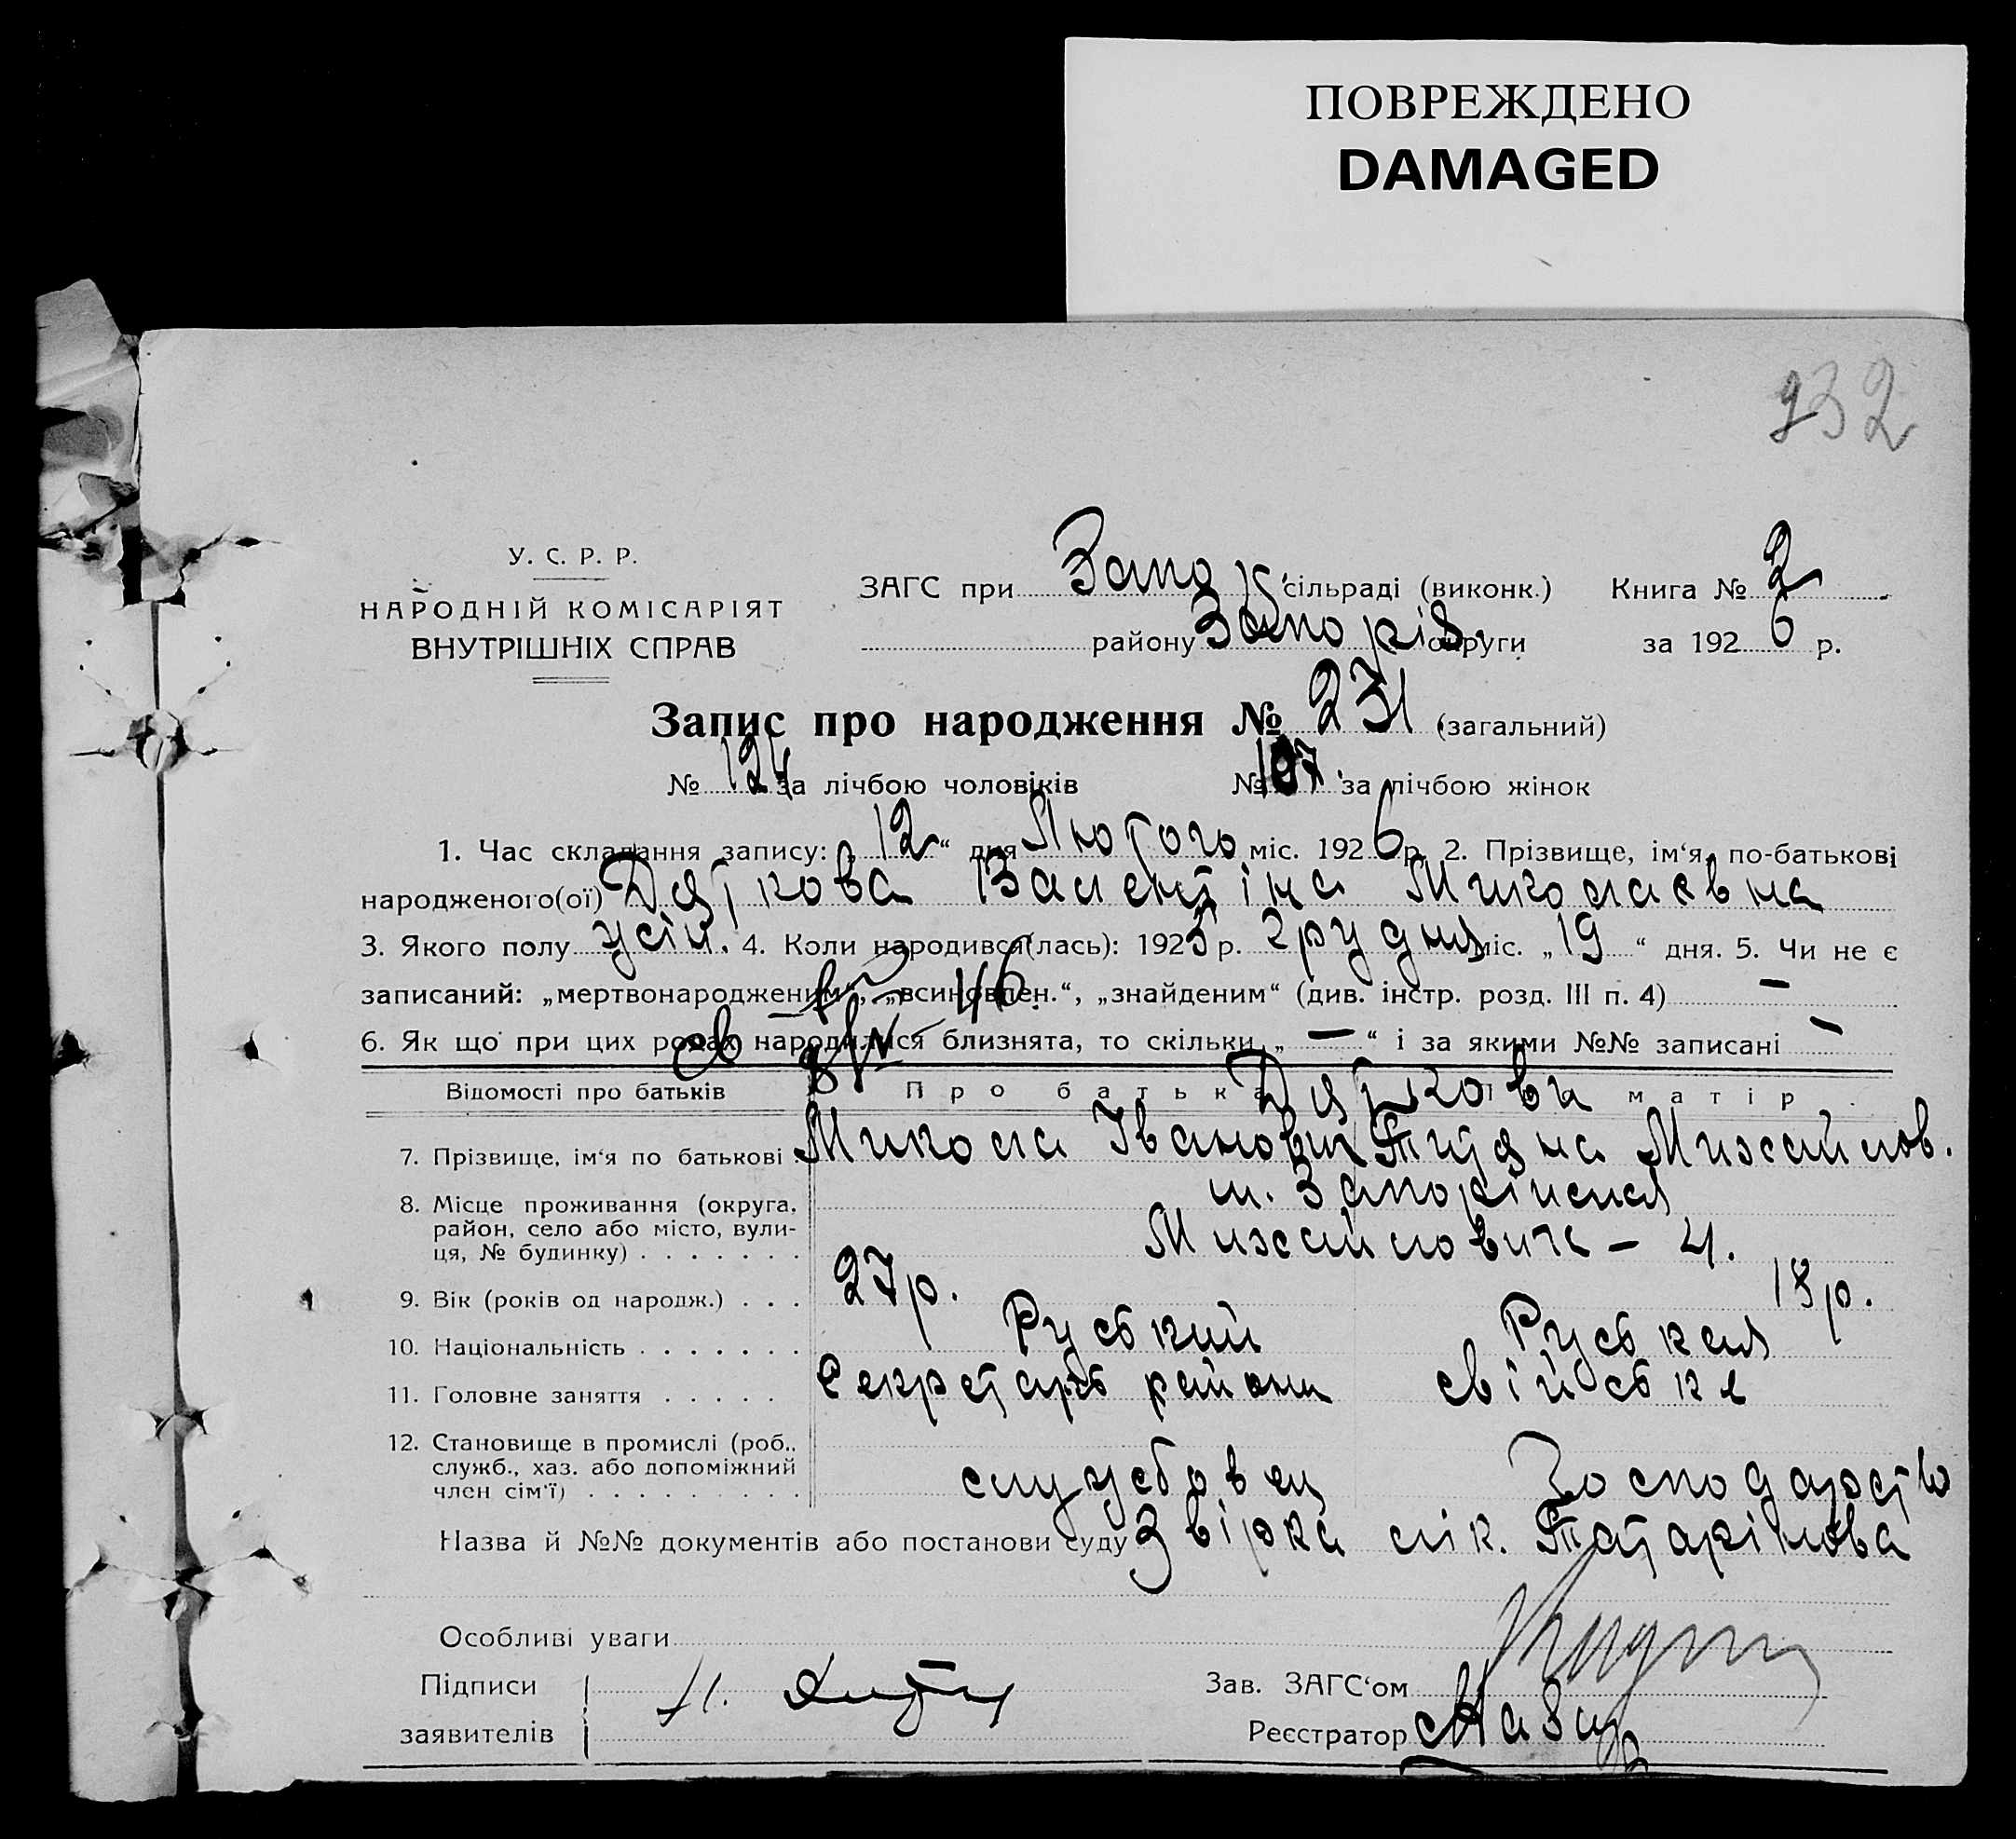 ПОВРЕЖДЕНО
DAMAGED
232
У. С. Р. Р.
НАРОДНІЙ КОМІСАРІЯТ
ВНУТРІШНІХ СПРАВ
ЗАГС при Запор. сільраді (виконк.) Книга № 2
району Запоріз. округи за 1926 р.
Запис про народження № 231 (загальний)
№ 124 за лічбою чоловіків № 107 за лічбою жінок
1. Час складання запису: „12“ дня Лютого міс. 1926 р. 2. Прізвище, ім‘я, по-батькові
народженого(ої) Дяткова Валентіна Миколаєвна
3. Якого полу 4. Коли народився(лась): 1925 р. грудня міс. „19“ дня. 5. Чи не є
записаний: „мертвонародженим“, „всиновлен.“, „знайденим“ (див. інстр. розд. III п. 4) —
6. Як що при цих родах народилися близнята, то скільки „—“ і за якими №№ записані —
Відомості про батьків Про батька матір
Дяткови
7. Прізвище, ім‘я по батькові Микола Іванович Михайлов.
8. Місце проживання (округа, район, село або місто, вулиця, № будинку) м. Запоріжжя
Михайловича – 4.
9. Вік (років од народж.) 27 р. 18 р.
10. Національність Руський Руськая
11. Головне заняття Секретарь свійська
12. Становище в промислі (роб., служб., хаз. або допоміжний член сім‘ї) службовец господарство
Назва й №№ документів або постанови суду Звірка лік. Татарінова
Особливі уваги
Підписи
заявителів
Зав. ЗАГС‘ом
Реєстратор